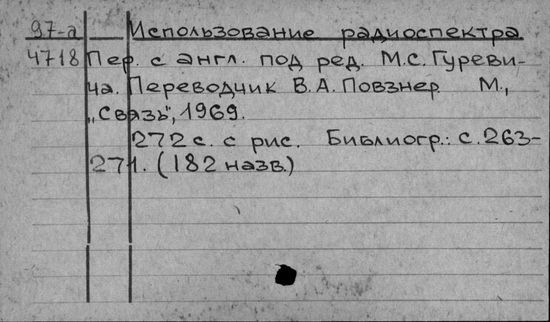 97-а Использование радиоспектра
4718 Пер. с англ. под ред. М.С. Гуреви-
ча. Переводчик В.А. Повзнер М.,
„Связь", 1969.
272 с. с рис. Библиогр.: с. 263-
271. (182 назв.)